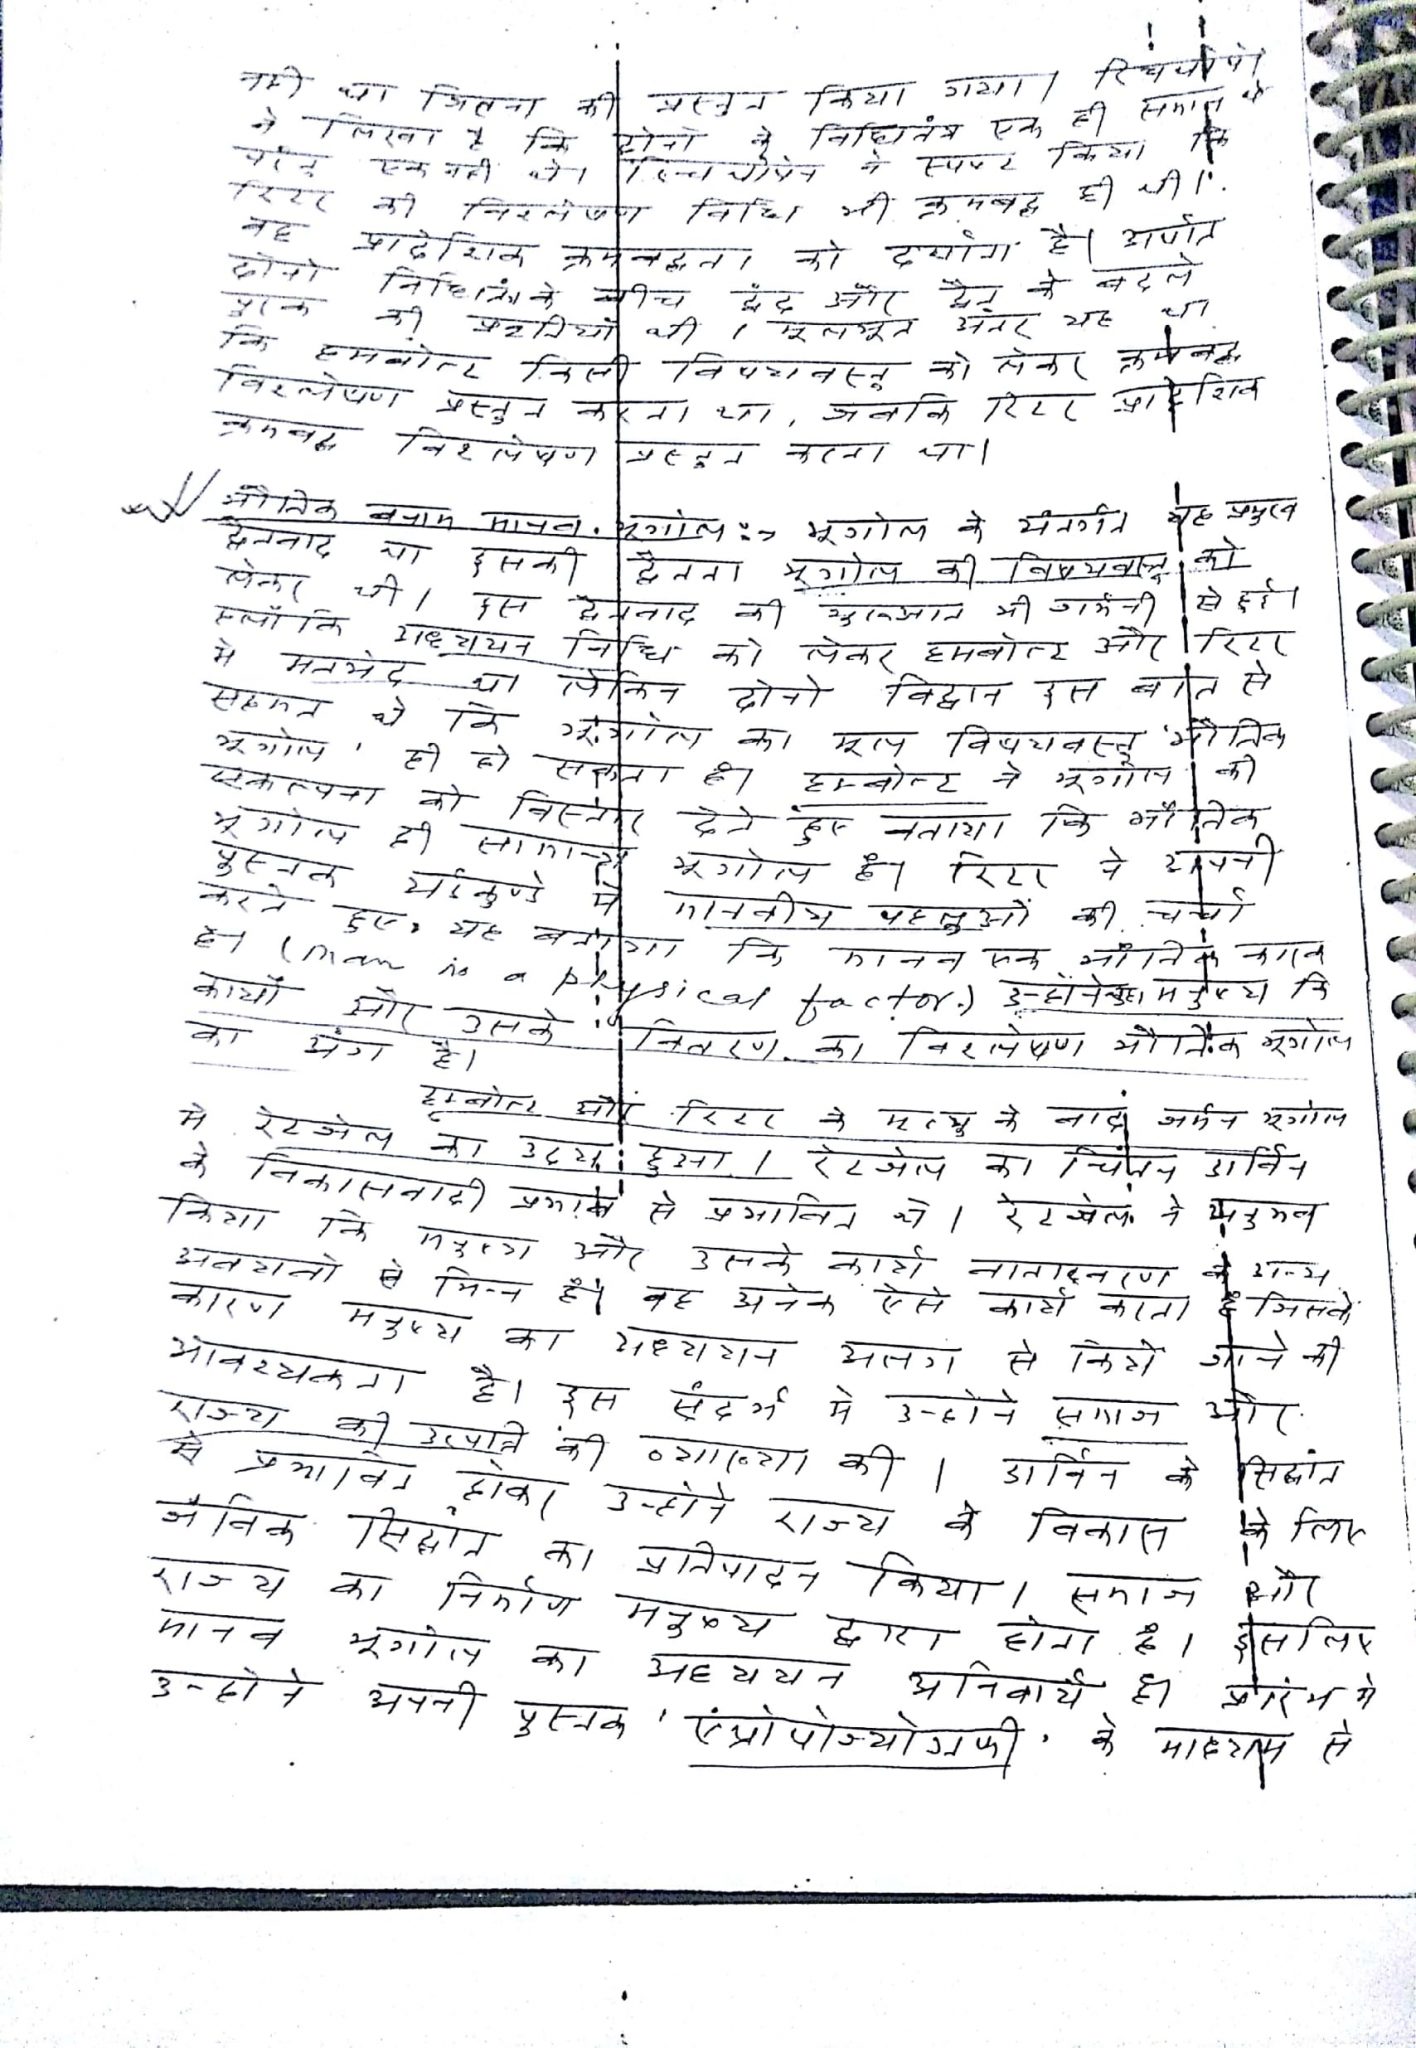 नही था जितना की प्रस्तुत किया गया। रिचथोफेन
ने लिखा है कि दोनो के विधितंत्र एक ही समान थे
परंतु एक नही थे। रिचथोफेन ने स्पष्ट किया कि
रिटर की विश्लेषण विधि भी क्रमबद्ध ही थी।
वह प्रादेशिक क्रमबद्धता को दर्शाता है। अर्थात
दोनो विधितंत्र के बीच द्वंद और द्वैत के बदले
पुरक की प्रवृतियाँ थी। मूलभूत अंतर यह था
कि हमबोल्ट किसी विषयवस्तु को लेकर क्रमबद्ध
विश्लेषण प्रस्तुत करता था, जबकि रिटर प्रादेशिक
क्रमबद्ध विश्लेषण प्रस्तुत करता था।
भौतिक बनाम मानव भूगोल :→ भूगोल के अंतर्गत यह प्रमुख
द्वैतवाद था इसकी द्वैतता भूगोल की विषयवस्तु को
लेकर थी। इस द्वैतवाद की शुरुआत भी जर्मनी से हुई।
हालाँकि अध्ययन विधि को लेकर हमबोल्ट और रिटर
मे मतभेद था लेकिन दोनो विद्वान इस बात से
सहमत थे कि भूगोल का मूल विषयवस्तु 'भौतिक
भूगोल' ही हो सकता है। हम्बोल्ट ने भूगोल की
संकल्पना को विस्तार देते हुए बताया कि भौतिक
भूगोल ही सामान्य भूगोल है। रिटर ने अपनी
पुस्तक अर्डकुण्डे मे मानवीय पहलुओं की चर्चा
करते हुए, यह बताया कि मानव एक भौतिक कारक
है। (Man is a physical factor.) उन्होंने कहा मनुष्य कि
कार्यों और उसके वितरण का विश्लेषण भौतिक भूगोल
का अंग है।
हम्बोल्ट और रिटर के मृत्यु के बाद जर्मन भूगोल
मे रेटजेल का उदय हुआ। रेटजेल का चिंतन डार्विन
के विकासवादी प्रभाव से प्रभावित थे। रेटजेल ने अनुभव
किया कि मनुष्य और उसके कार्य वातावरण के अन्य
अवयवो से भिन्न है। वह अनेक ऐसे कार्य करता है जिसके
कारण मनुष्य का अध्ययन अलग से किये जाने की
आवश्यकता है। इस संदर्भ मे उन्होने समाज और
राज्य की उत्पति की व्याख्या की। डार्विन के सिद्धांत
से प्रभावित होकर उन्होने राज्य के विकास के लिए
जैविक सिद्धांत का प्रतिपादन किया। समाज और
राज्य का निर्माण मनुष्य द्वारा होता है। इसलिए
मानव भूगोल का अध्ययन अनिवार्य है। प्रारंभ मे
उन्होने अपनी पुस्तक 'एंथ्रोपोज्योग्राफी' के माध्यम से